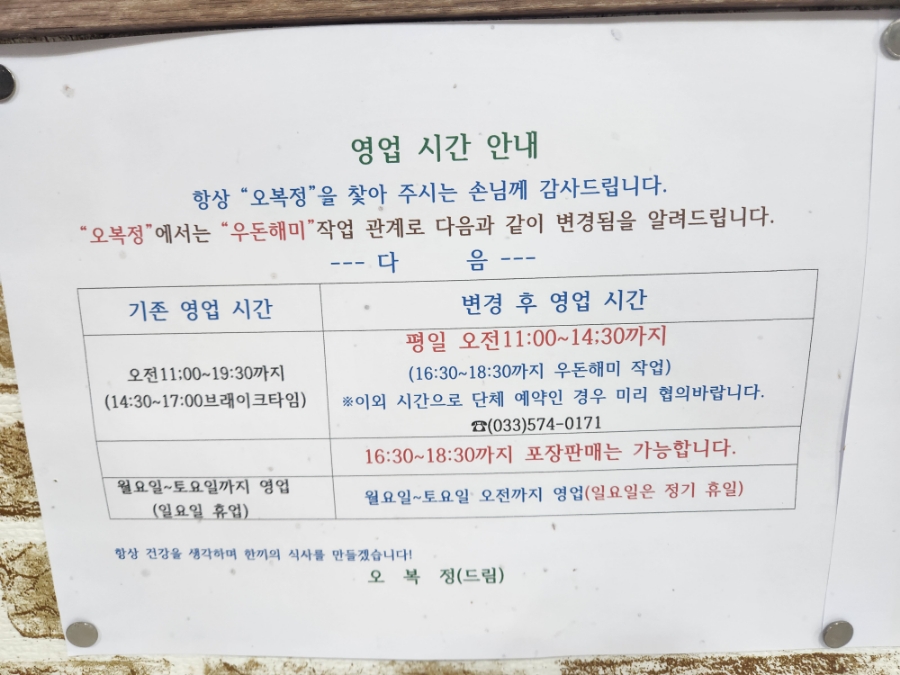 영업 시간 안내
항상 “오복정”을 찾아 주시는 손님께 감사드립니다.
“오복정”에서는 “우돈해미”작업 관계로 다음과 같이 변경됨을 알려드립니다.
--- 다 음 ---
기존 영업 시간
변경 후 영업 시간
오전11;00~19:30까지
(14:30~17:00브래이크타임)
평일 오전11:00~14;30까지
(16:30~18:30까지 우돈해미 작업)
※이외 시간으로 단체 예약인 경우 미리 협의바랍니다.
☎(033)574-0171
16:30~18:30까지 포장판매는 가능합니다.
월요일~토요일까지 영업
(일요일 휴업)
월요일~토요일 오전까지 영업(일요일은 정기 휴일)
항상 건강을 생각하며 한끼의 식사를 만들겠습니다!
오 복 정(드림)